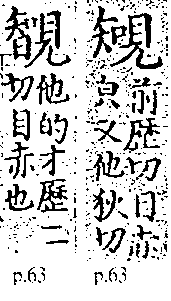 覟
前歷切目赤
皃又他狄切
他的才歷二
切目赤也
p.63
p.63